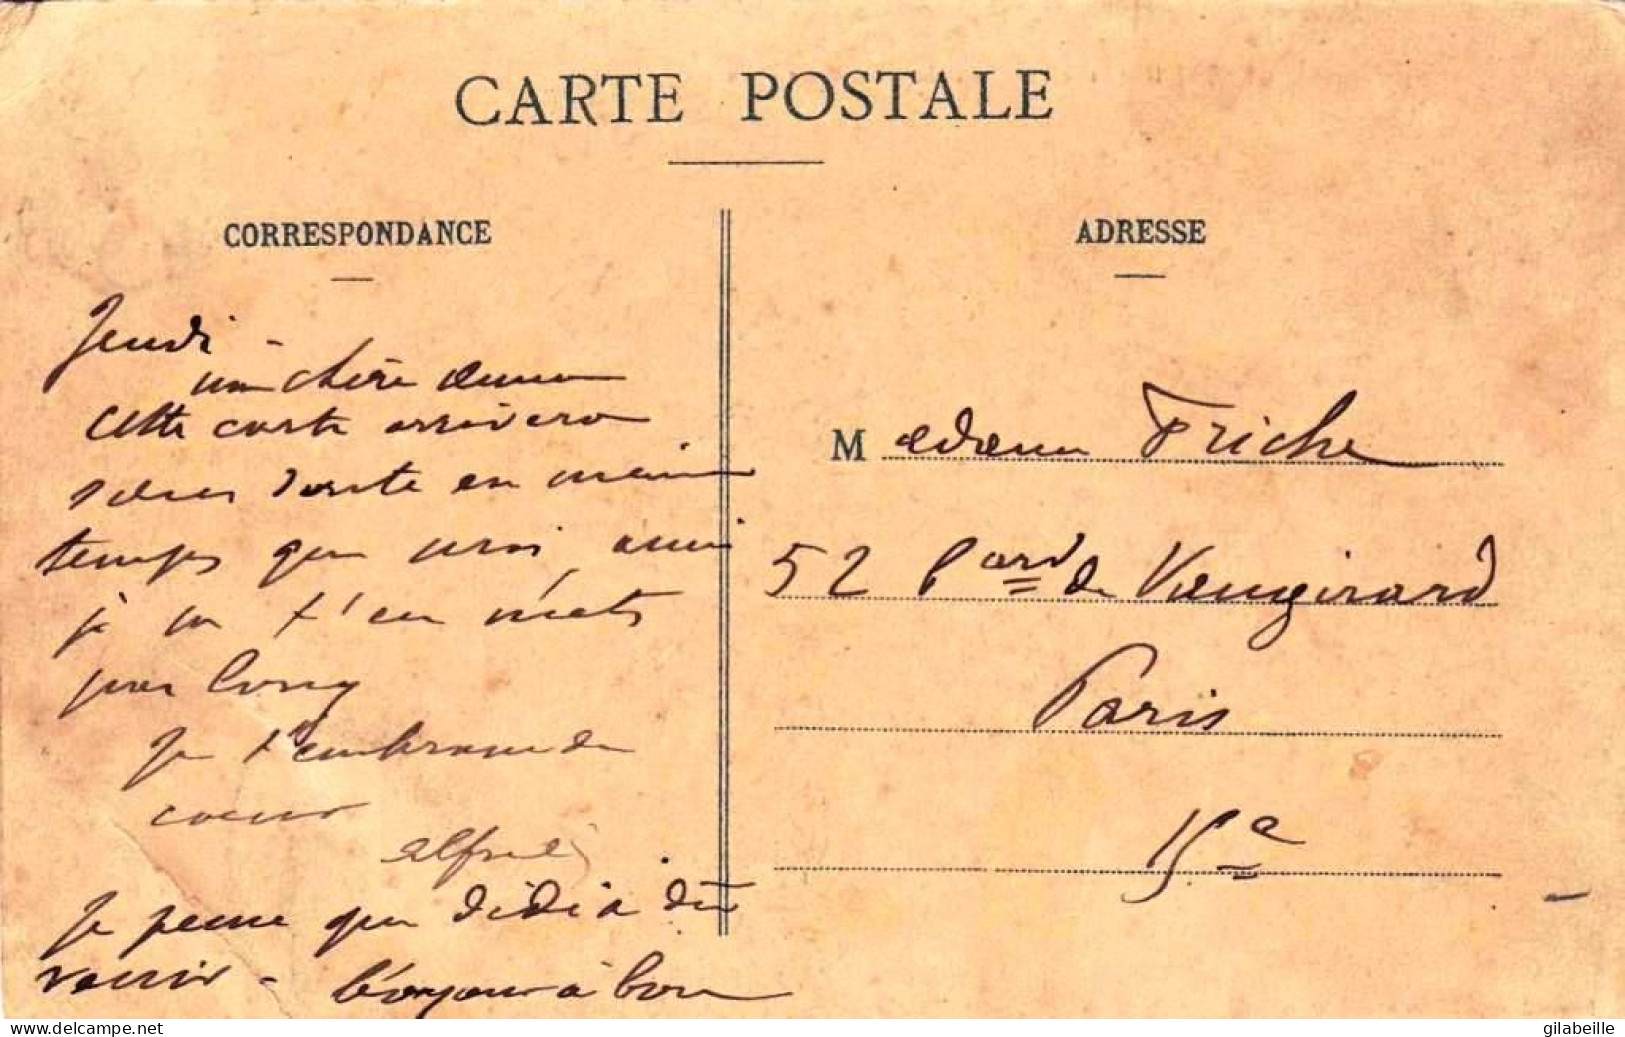 CARTE POSTALE
CORRESPONDANCE
ADRESSE
Jeudi -
ma chère
cette carte arrivera
sans doute en même
temps que moi aussi
je ne t'en mets
pas long
Je t'embrasse de
coeur
alfred
Je pense que didi a dû
venir - bonjour à
Madame Friche
52 Bard de Vaugirard
Paris
15e
www.delcampe.net
gilabeille